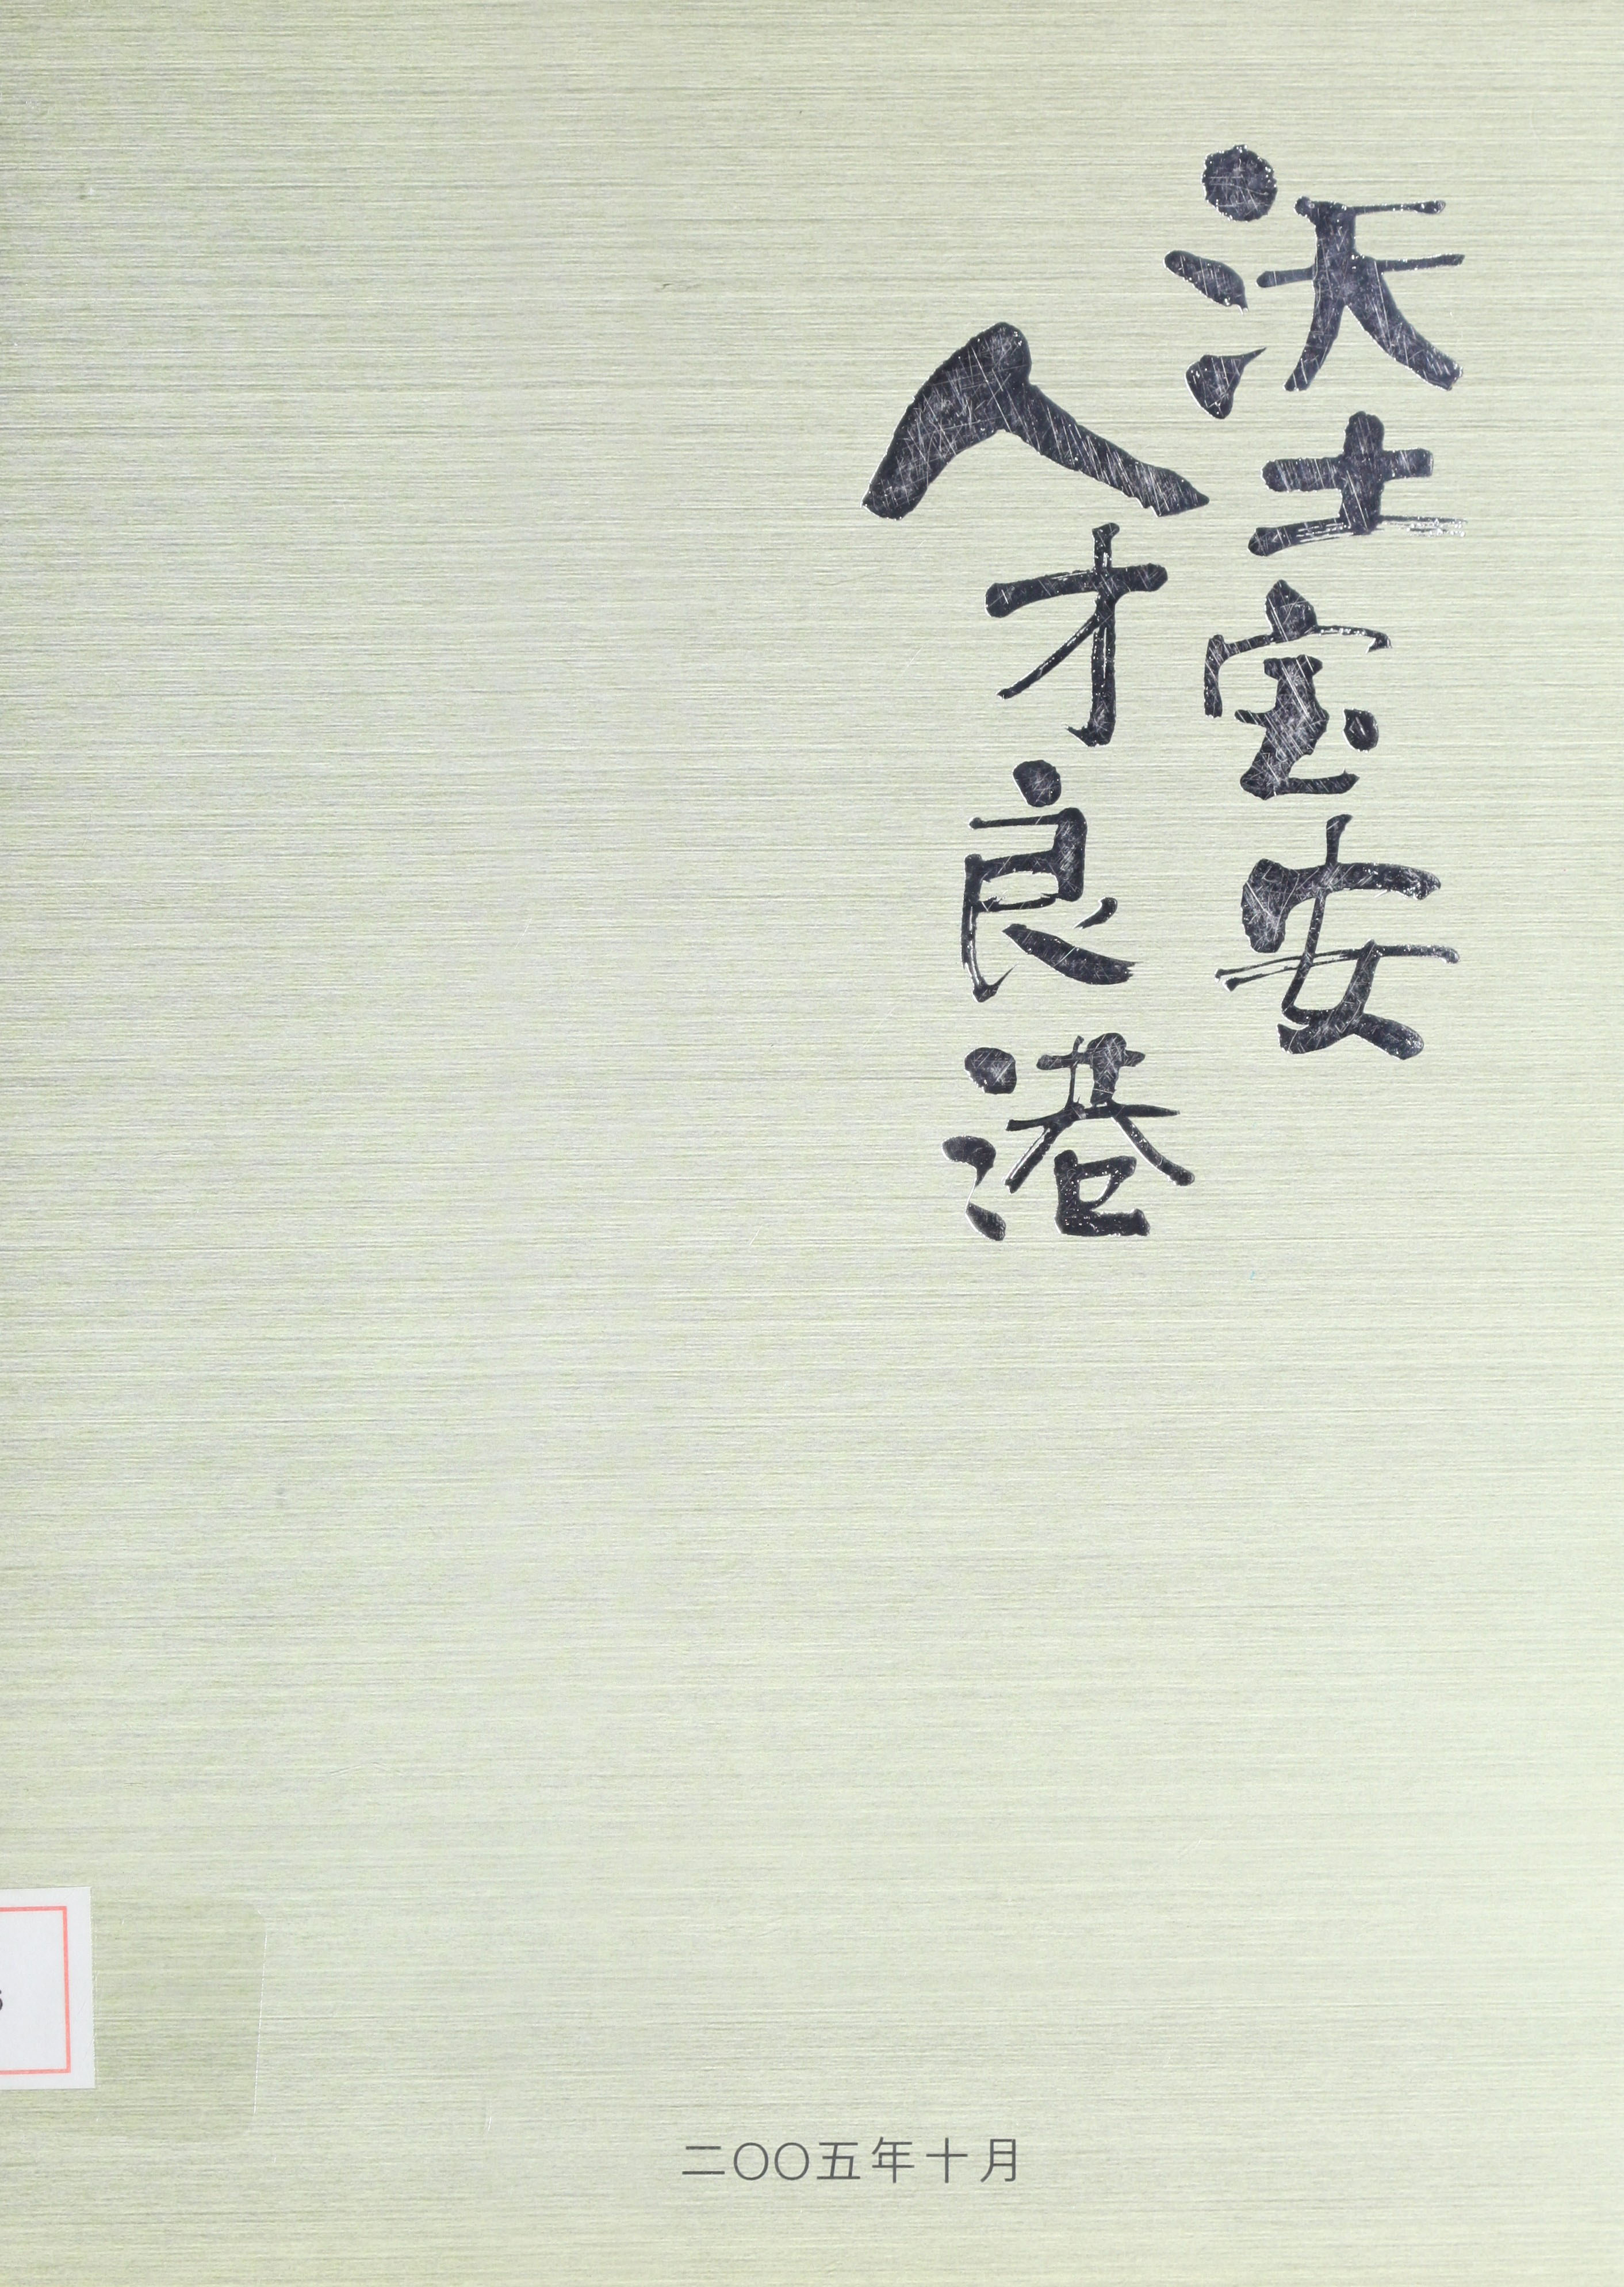 沃土宝安
人才良港
二〇〇五年十月